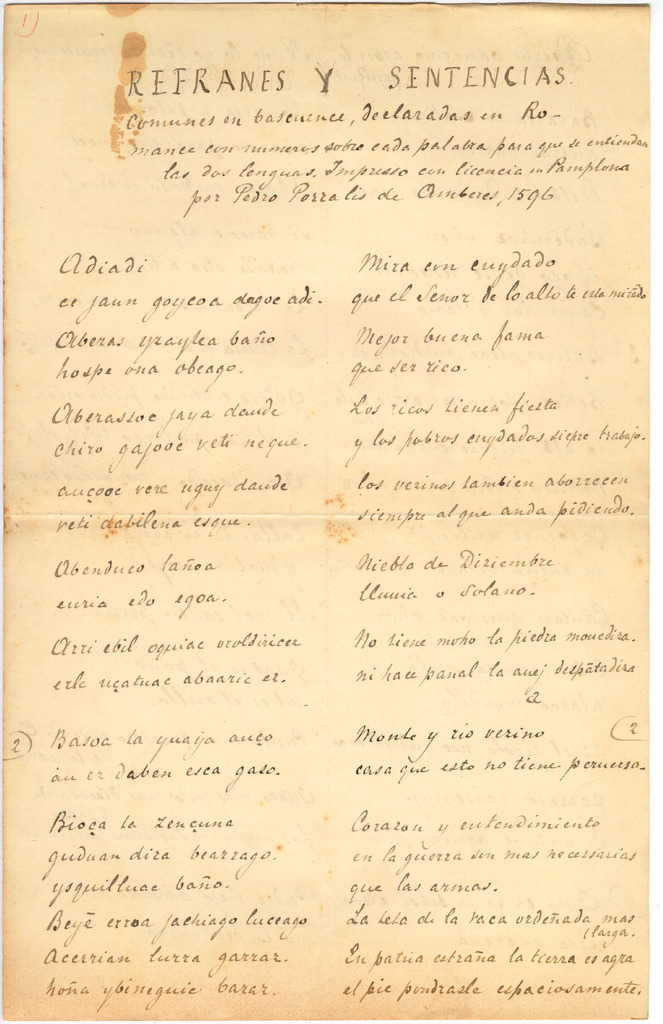 1)
REFRANES Y SENTENCIAS.
comunes en bascuence, declaradas en Ro-
mance con numeros sobre cada palabra para que se entiendan
las dos lenguas. Impresso con licencia en Pamplona
por Pedro Porralis de Amberes, 1596
Adiadi
ce jaun goycoa dagoc adi.
Aberas yzaytea baño
hospe ona obeago.
Aberassoc jaya daude
chiro gajooc veti neque.
auçooc vere uguy daude
veti dabilena esque.
Abenduco lañoa
euria edo egoa.
Arri ebil oquiac oroldiricez
erle uçatuac abaaric ez.
2) Basoa ta yuaya auço
au ez daben esca gaso.
Bioça ta zençuna
guduan dira bearrago.
ysquilluac baño.
Beyẽ erroa jachiago luceago
Acerrian lurra garraz.
hoña ybineguic baraz.
Mira con cuydado
que el Señor de lo alto te esta mirãdo
Mejor buena fama
que ser rico.
Los ricos tienen fiesta
y los pobros cuydados siẽpre trabajo.
los vezinos tambien aborrecen
siempre al que anda pidiendo.
Niebla de Diziembre
lluuia o Solano.
No tiene moho la piedra mouediza.
ni hace panal la auej despãtadiza
a
Monte y rio vezino 2
casa que esto no tiene peruersa.
Corazon y entendimiento
en la guerra son mas necessarias
que las armas.
La teta de la vaca ordeñada mas
(larga.
En patria estraña la tierra es agra
el pie pondrasle espaciosamente.